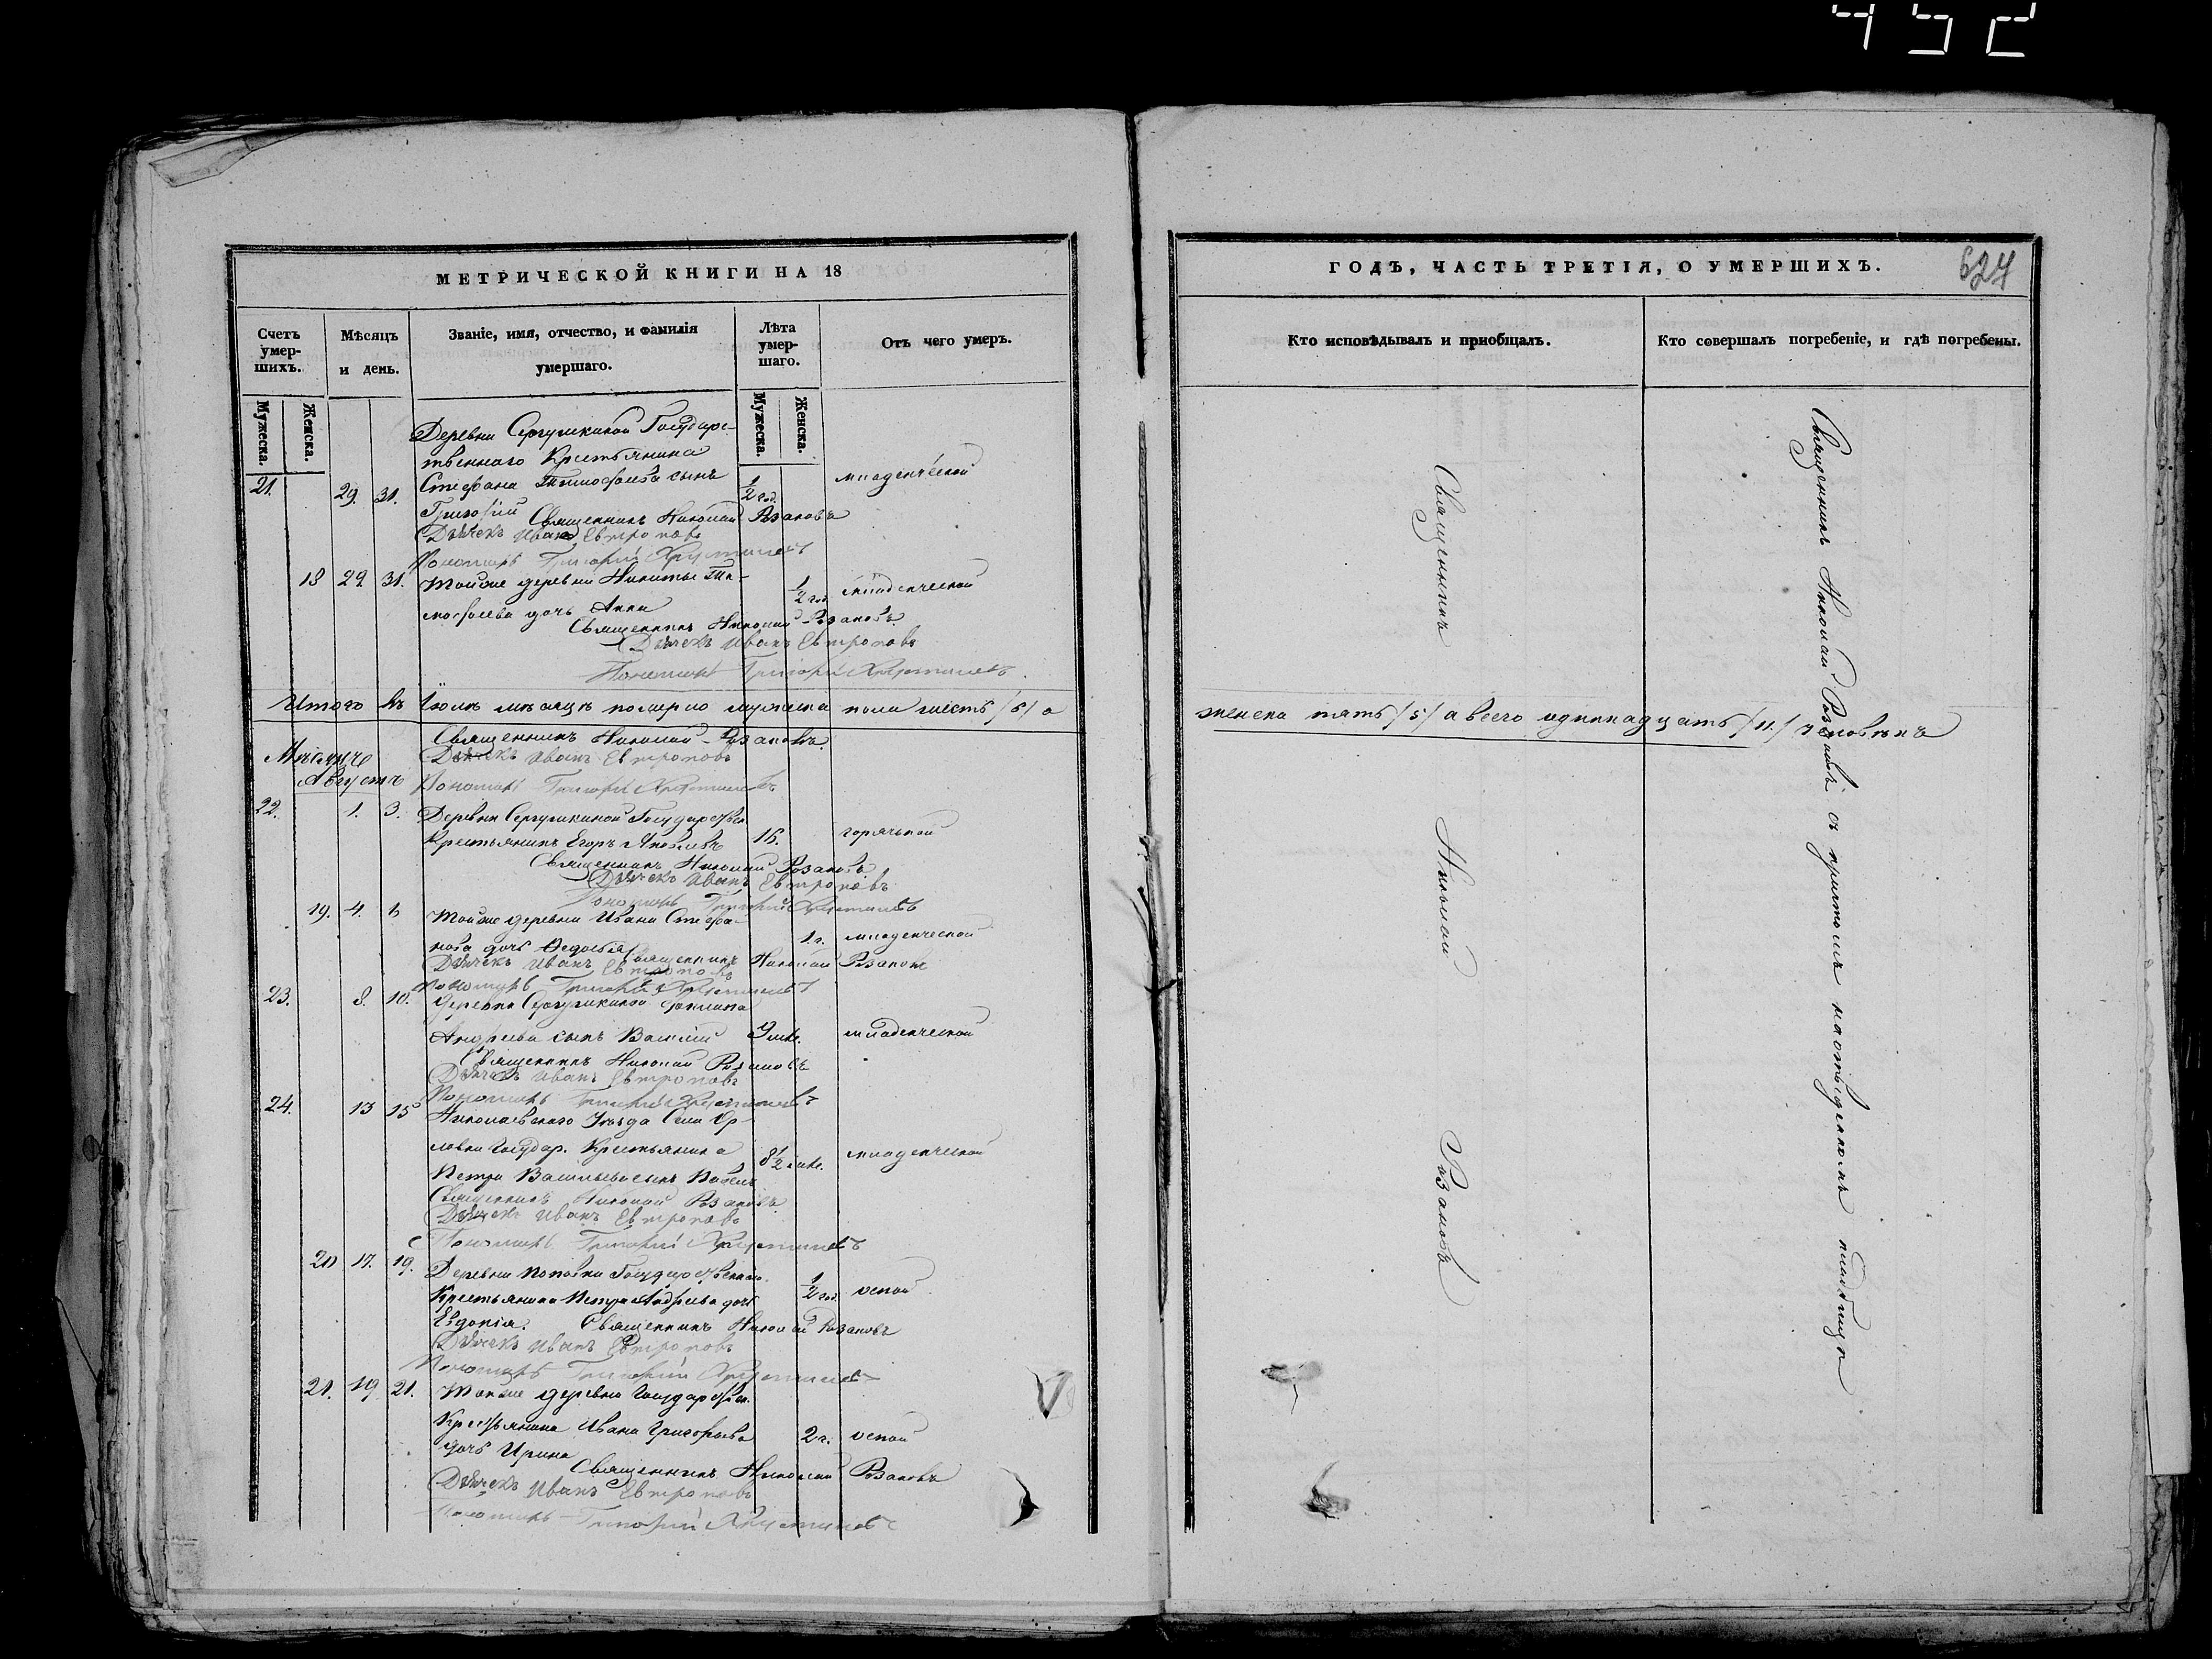 452
МЕТРИЧЕСКОЙ КНИГИ НА 18
Счетъ умер-шихъ.
Мѣсяцъ и день.
Званіе, имя, отчество, и фамилія умершаго.
Лѣта умер-шаго.
Отъ чего умеръ.
Мужеска.
Женска.
Мужеска.
Женска.
Деревни Сергушкиной Государс-
твеннаго Крестьянина
21. 29. 31. Стефана Тимофеева сынъ 1/2 год. младенческой
Григорій Священникъ Николай Розановъ
Дьячекъ Иванъ Евтроповъ
Пономарь Григорій
18 29 31. Тойже деревни Никиты Ти- 1/2 год. младенческой
мофеева дочь Анна
Священникъ Николай Розановъ
Дьячекъ Иванъ Евтроповъ
Пономарь Григорій
Итого въ Іюлѣ мѣсяцѣ померло мужеска пола шесть /6/ а
Священникъ Николай Розановъ
Мѣсяцъ Дьячекъ Иванъ Евтроповъ
Августъ Пономарь Григорій
22. 1. 3. Деревни Сергушкиной Государствен.
Крестьянинъ Егоръ Яковлевъ горячкой
Священникъ Николай Розановъ
Дьячекъ Иванъ Евтроповъ
Пономарь Григорій
19. 4. Тойже деревни Ивана Стефа-
нова дочь Федосья 1 г. младенческой
Священникъ Николай Розановъ
Дьячекъ Иванъ Евтроповъ
Пономарь Григорій
23. 8. 10. деревни Сергушкиной
Андреева сынъ Василій младенческой
Священникъ Николай Розановъ
Дьячекъ Иванъ Евтроповъ
Пономарь Григорій
24. 13 15 Николаевскаго Уѣзда Села Ор-
ловки Государ. Крестьянина 8 1/2 младенческой
Петра Васильева сынъ Павелъ
Священникъ Николай Розановъ
Дьячекъ Иванъ Евтроповъ
Пономарь Григорій
20 17. 19. Деревни Поповки Государственнаго
Крестьянина Петра Андреева дочь 1/2 год. оспой
Евдокія. Священникъ Николай Розановъ
Дьячекъ Иванъ Евтроповъ
Пономарь Григорій
21. 19 21. Тойже деревни Государствен.
Крестьянина Ивана Григорьева 2 г. оспой
дочь Ирина
Священникъ Николай Розановъ
Дьячекъ Иванъ Евтроповъ
Пономарь Григорій
ГОДЪ, ЧАСТЬ ТРЕТІЯ, О УМЕРШИХЪ.
627
Кто исповѣдывалъ и пріобщалъ.
Кто совершалъ погребеніе, и гдѣ погребены.
женска пять /5/ а всего одиннадцать /11./ человѣкъ
Священникъ Николай Розановъ
Священникъ Николай Розановъ съ причтомъ на отведенномъ кладбищѣ